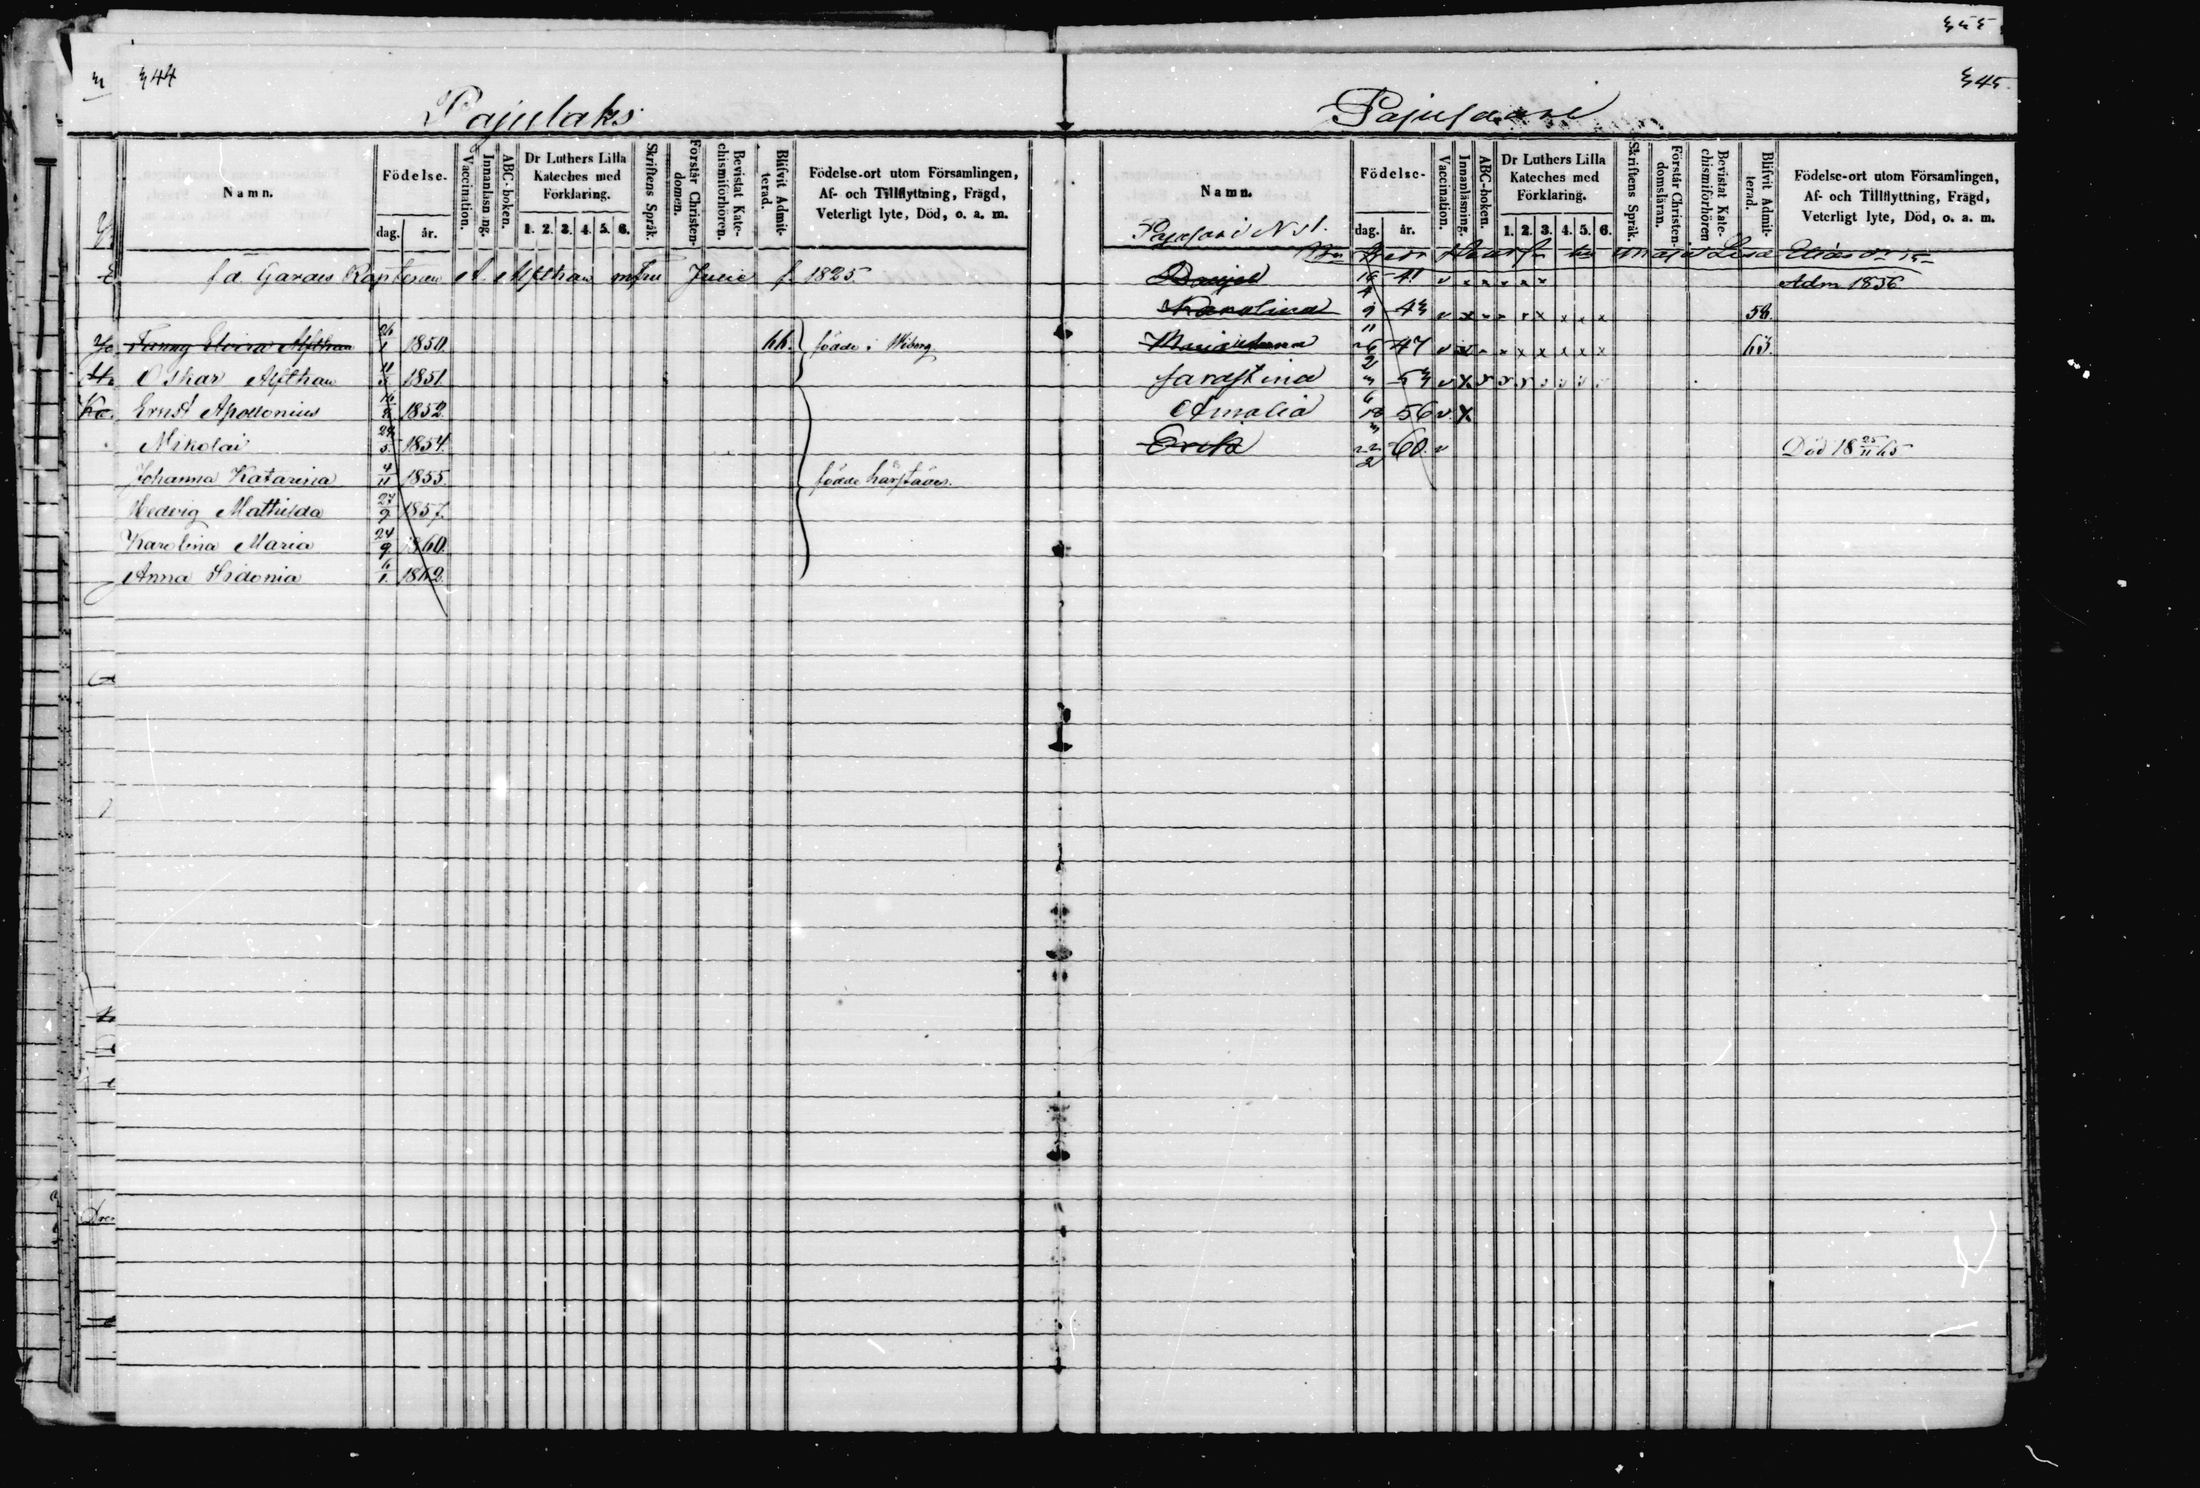 344
Pajulaks
Namn.
Födelse.
dag. år.
Vaccination.
Innanläsning.
ABC-boken.
Dr Luthers Lilla Kateches med Förklaring.
1. 2. 3. 4. 5. 6.
Skriftens Språk.
Förstår Christendomen.
Bevistat Katechismiförhören.
Blifvit Admitterad.
Födelse-ort utom Församlingen,
Af- och Tillflyttning, Frägd,
Veterligt lyte, Död, o. a. m.
f. d. Gardes Kaptenen A. Alfthan m Fru Julie f. 1825.
Fanny Elvira Alfthan 26/1 1850. 66. födde i Wiborg
Oskar Alfthan 1851.
Ernst Apollonius 16/8 1852.
Nikolai 24/5 1854.
Johanna Katarina 4/11 1855. födde härstädes.
Hedvig Mathilda 27/9 1857.
Karolina Maria 24/9 1860.
Anna Sidonia 6/1 1862.
355
345
Pajusaari
Namn.
Födelse-
dag. år.
Vaccination.
Innanläsning.
ABC-boken.
Dr Luthers Lilla Kateches med Förklaring.
1. 2. 3. 4. 5. 6.
Skriftens Språk.
Förstår Christendomsläran.
Bevistat Katechismiförhören
Blifvit Admitterad.
Födelse-ort utom Församlingen,
Af- och Tillflyttning, Frägd,
Veterligt lyte, Död, o. a. m.
Pajusari N:o 1.
Maja Lisa
Daniel 41 v x x x x x Adm 1856
Karolina 43 v x x x x x x x x 58.
Maria Anna 26/2 47 v x x x x x x x x 63.
53 v x v v v v v v v
Amalia 18/3 56 v. x
Erika 22/2 60. v Död 18 25/11 65